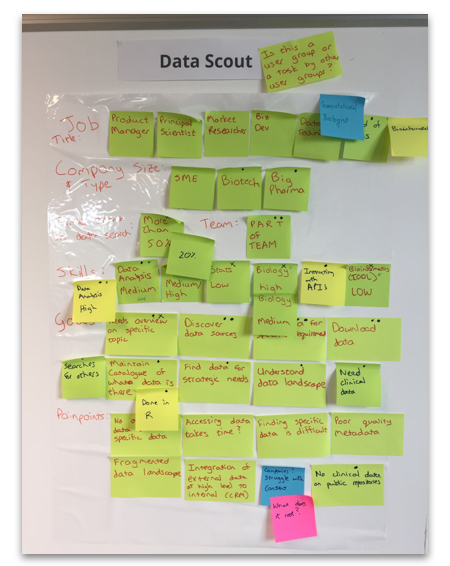 Data Scout
Is this a
user group or
a task by other
user groups?
Job
Title:
Product
Manager
Principal
Scientist
Market
Researcher
Biz
Dev
Data
Computational
Biologist
Bioinformatician
Company Size
& Type
SME
Biotech
Big
Pharma
data search:
More
than
50%
20%
Team:
PART
OF
TEAM
Skills:
Data
Analysis
Medium
Data
Analysis
High
Medium/
High
Stats
Low
Biology
high
Biology
Medium
Interacting
with
APIs
Bioinformatics
(TOOL)
LOW
overview
on specific
topic
Discover
data sources
Download
data
Searches
for others
Maintain
Catalogue of
what data is
there
Find data for
strategic needs
Understand
data landscape
Need
clinical
data
Done in
R
Painpoints:
No
data
specific data
Accessing data
takes time?
Finding specific
data is difficult
Poor quality
Metadata
Fragmented
data landscape
Integration of
external data
at high level to
internal (CCRM)
Companies
struggle with
No clinical data
on public repositories
What does
it not?